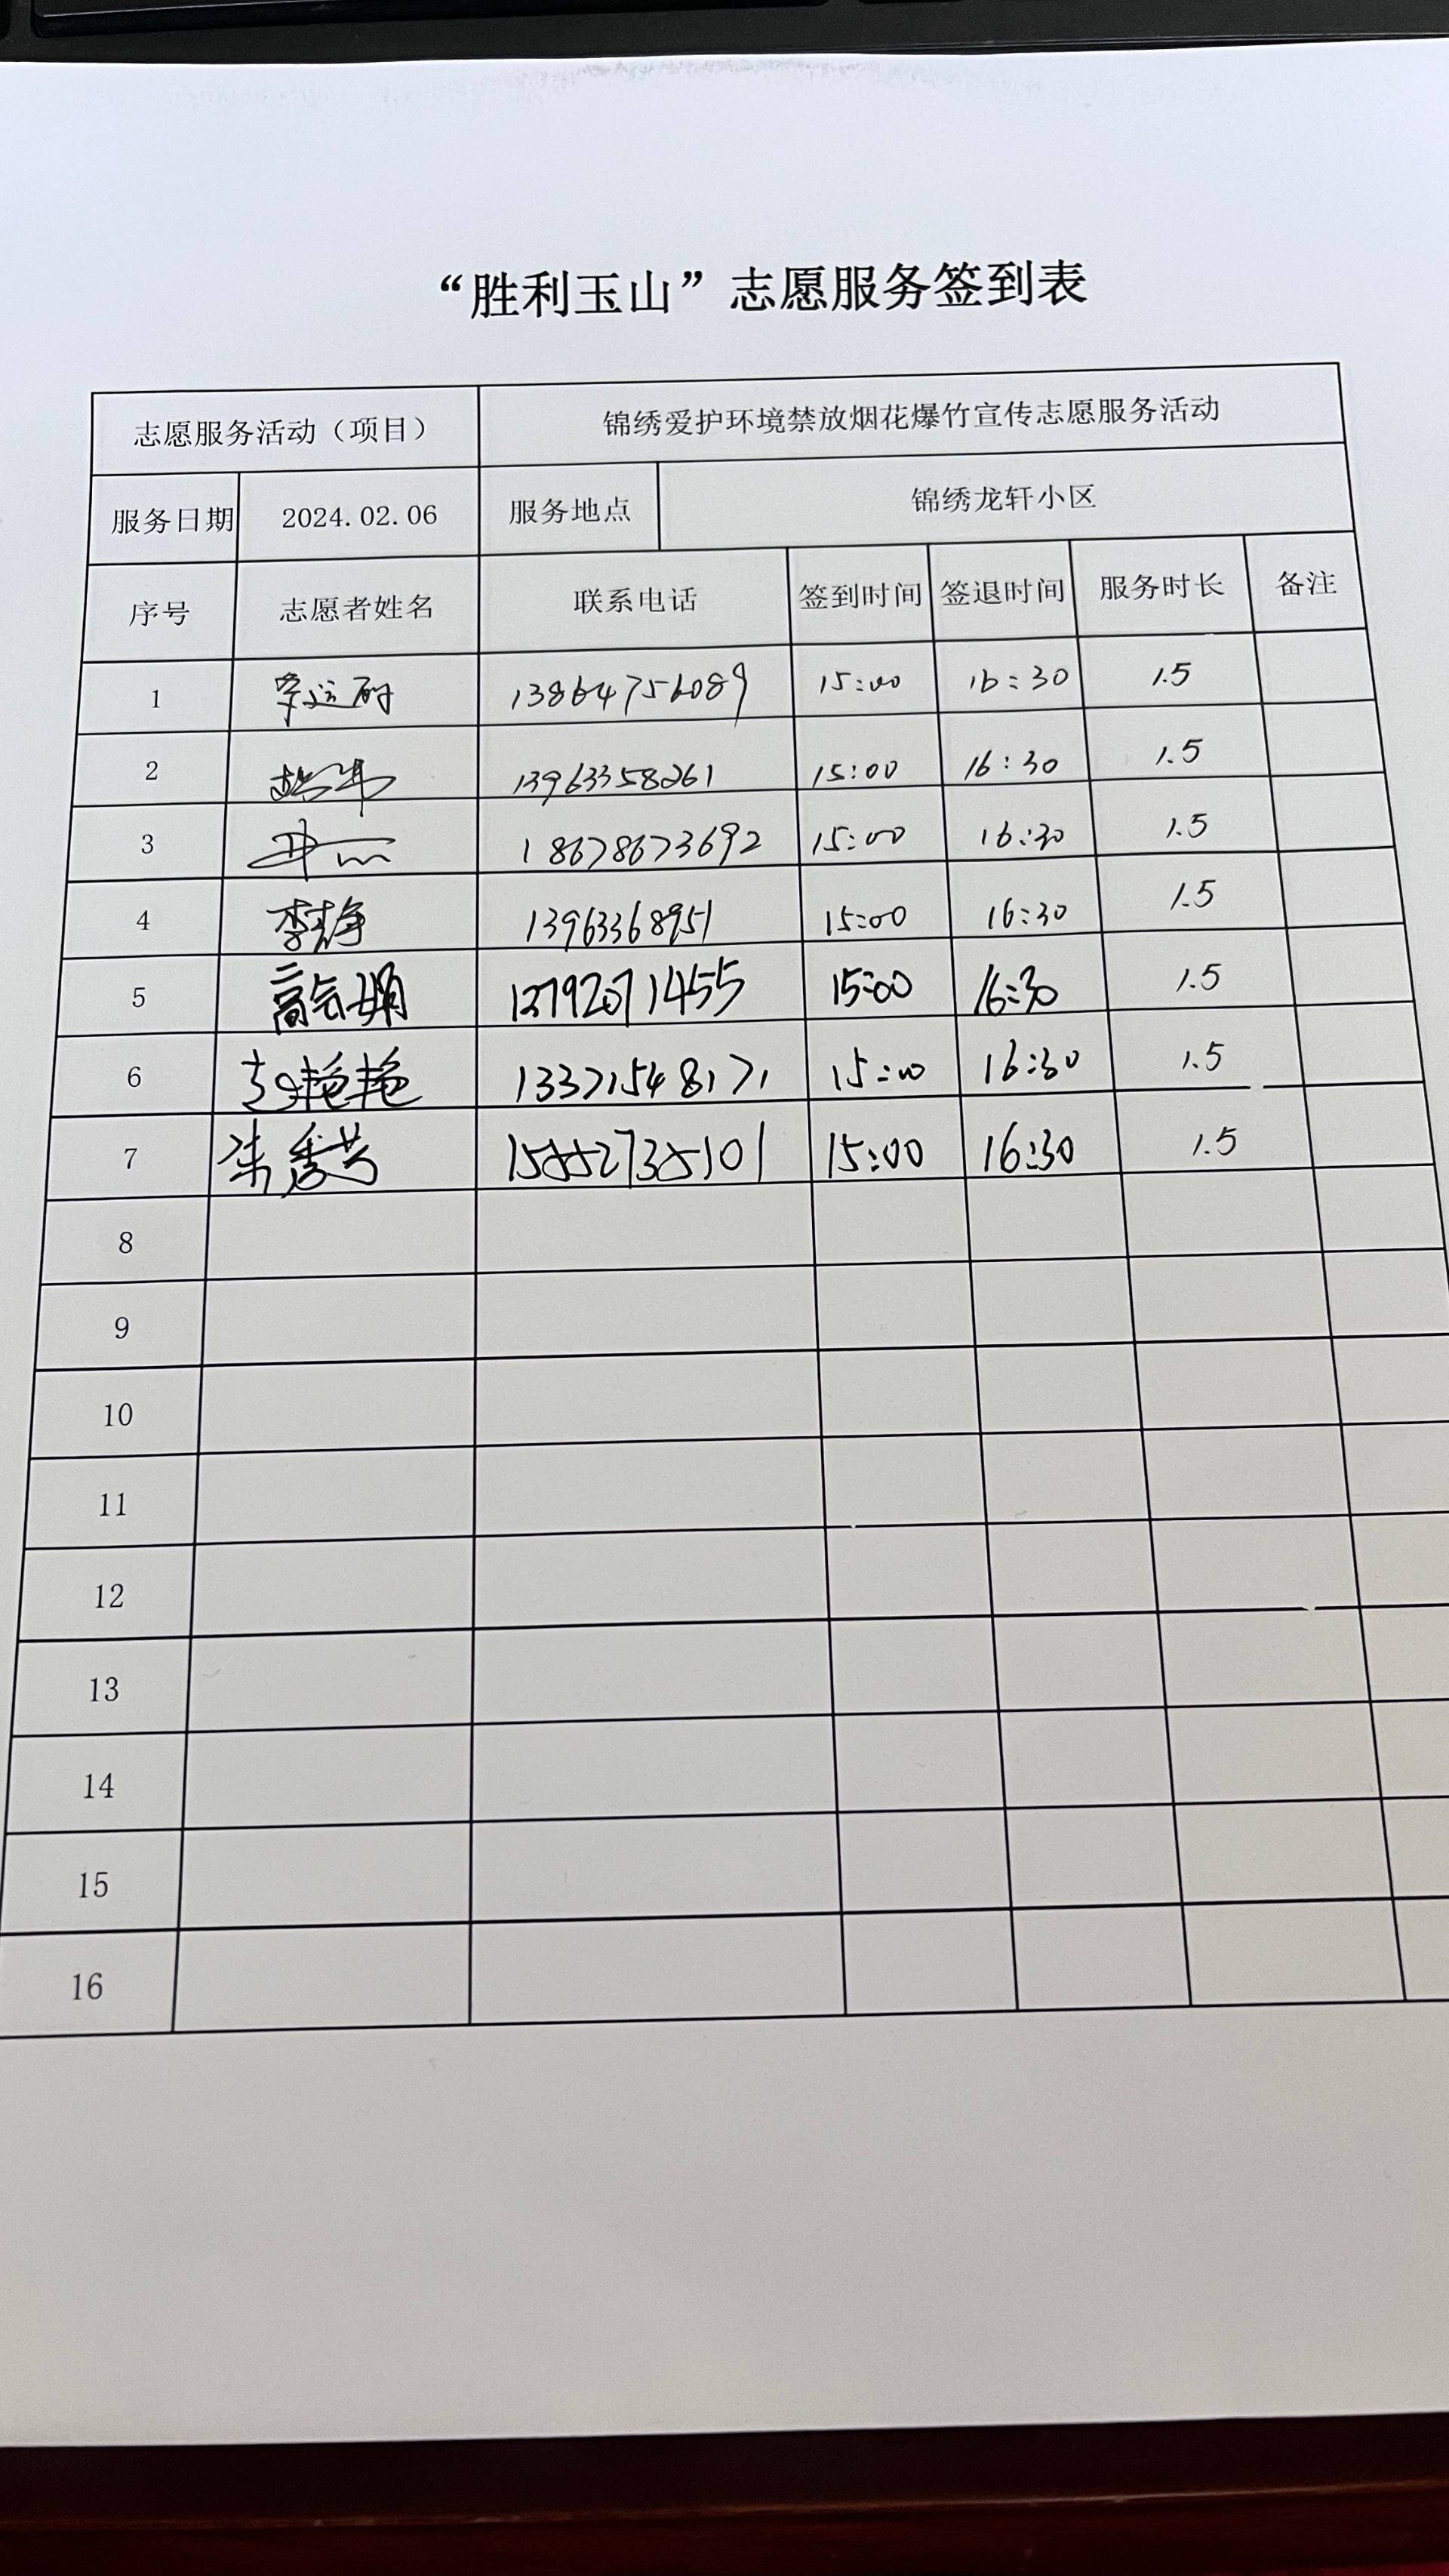 “胜利玉山”志愿服务签到表
志愿服务活动（项目） 锦绣爱护环境禁放烟花爆竹宣传志愿服务活动
服务日期 2024.02.06 服务地点 锦绣龙轩小区
序号 志愿者姓名 联系电话 签到时间 签退时间 服务时长 备注
1 13864756089 15:00 16:30 1.5
2 13963358261 15:00 16:30 1.5
3 18678673692 15:00 16:30 1.5
4 李静 13963368951 15:00 16:30 1.5
5 高会娟 15:00 16:30 1.5
6 赵艳艳 13371548171 15:00 16:30 1.5
7 朱秀芳 15:00 16:30 1.5
8
9
10
11
12
13
14
15
16